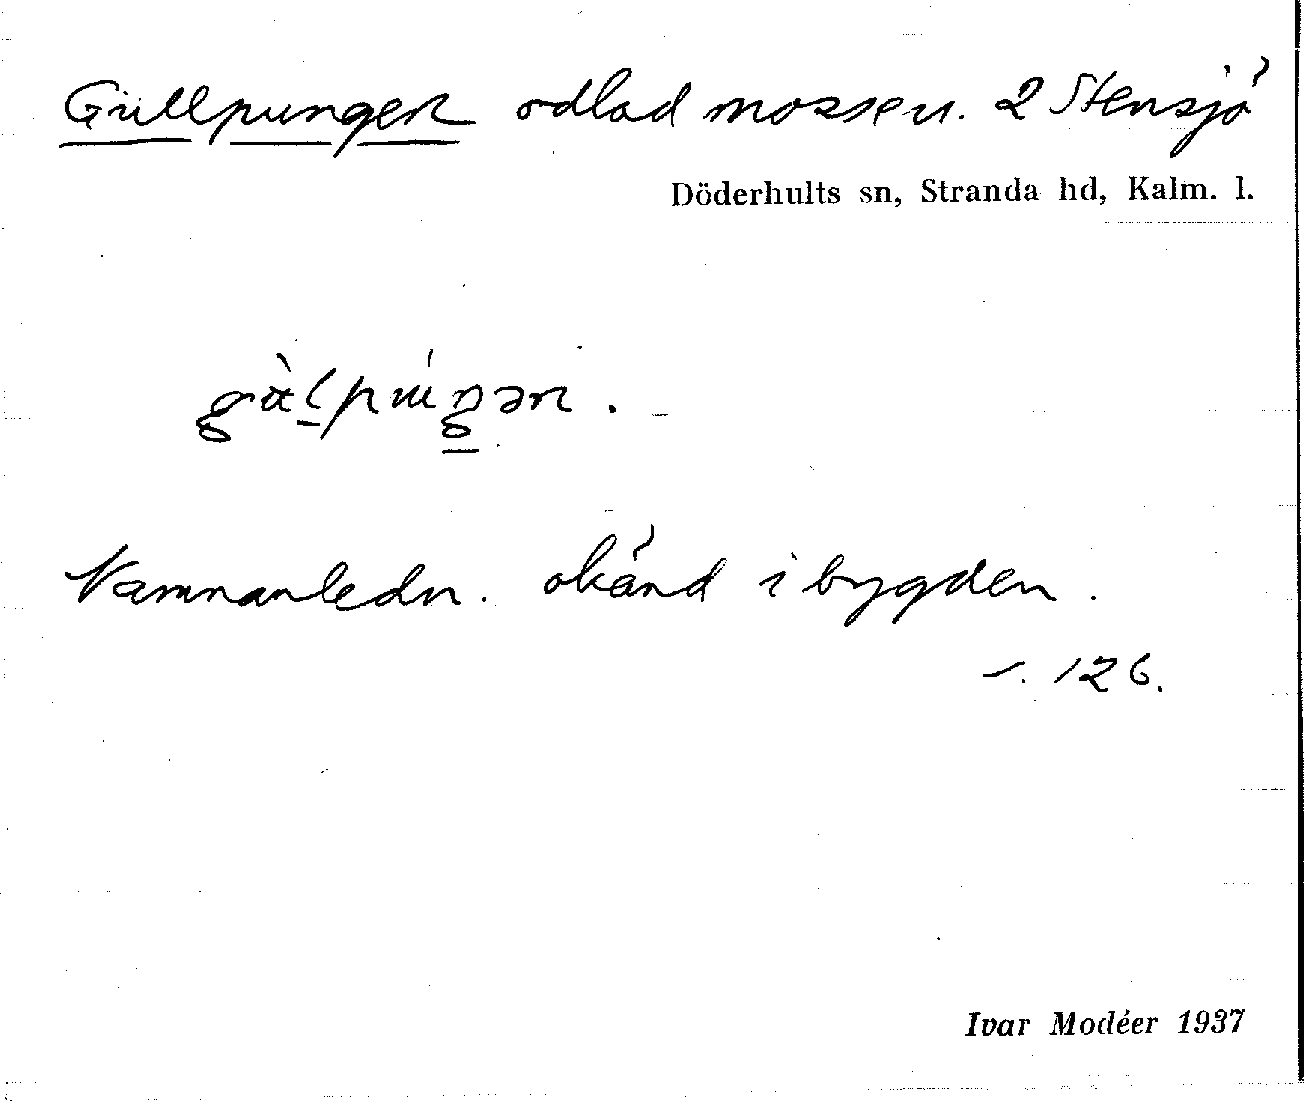 Gullpungen odlad mossen. 2 Stensjö
Döderhults sn, Stranda hd, Kalm. l.
Namnanledn. okänd i bygden.
s. 126.
Ivar Modéer 1937